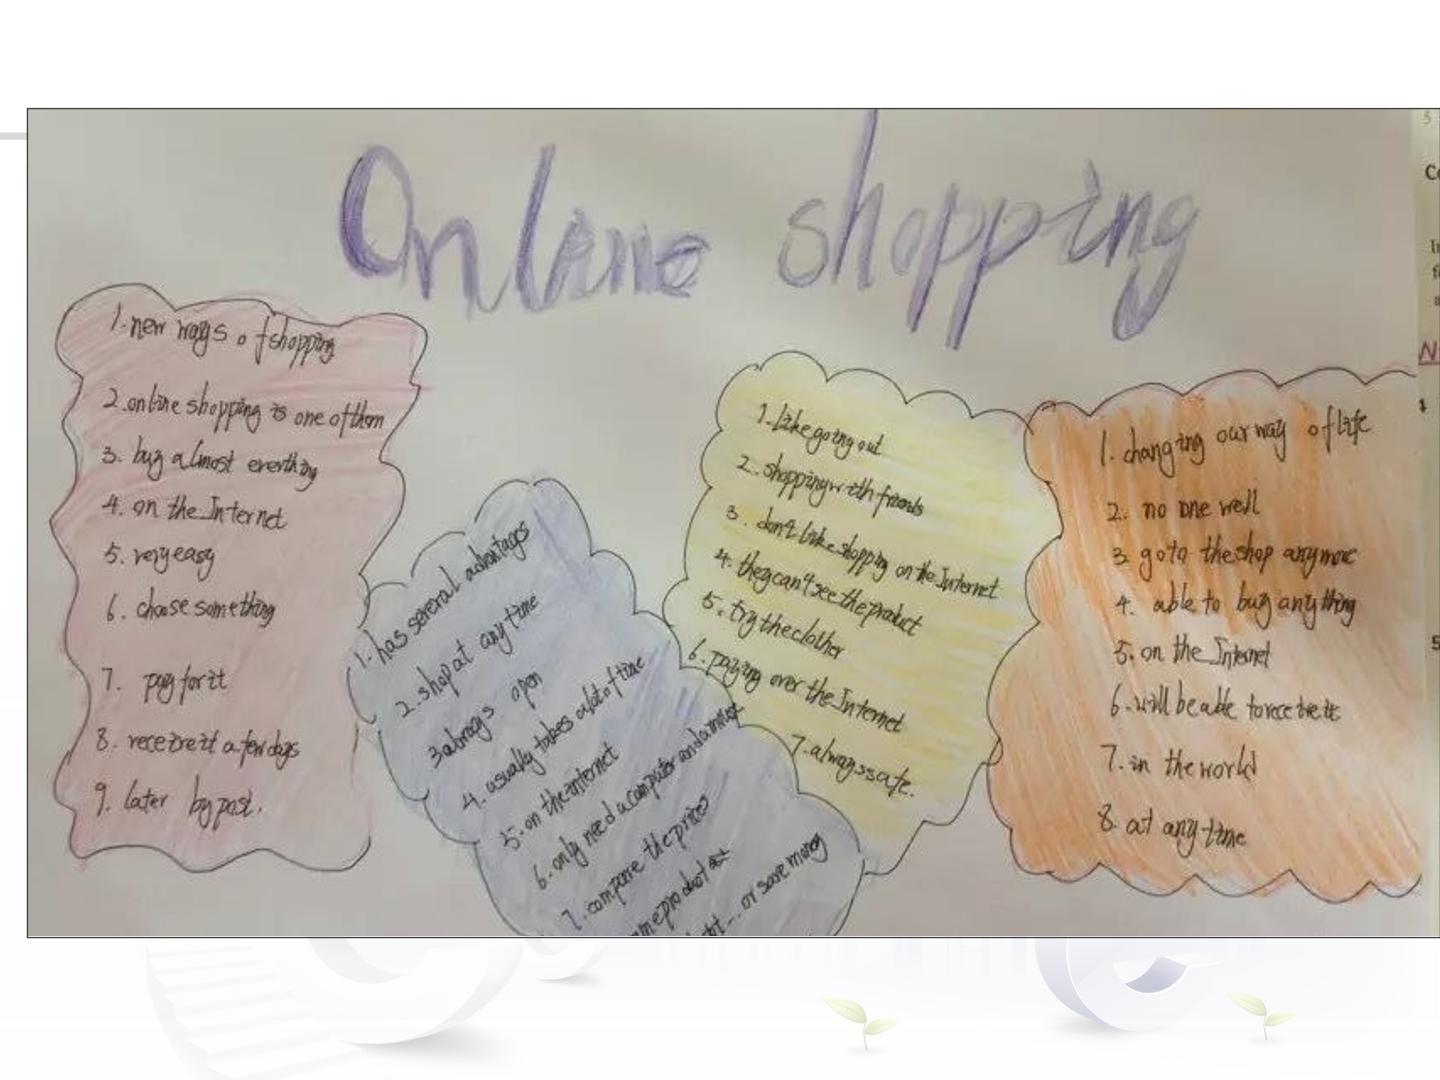 Online shopping
1. new ways of shopping
2. online shopping is one of them
3. buy almost everthing
4. on the Internet
5. very easy
6. choose something
7. pay for it
8. receive it a few days
9. later by post.
1. has several advantages
2. shop at any time
3 always open
4. usually takes a lot of time
5. on the internet
6. only need a computer and a mouse
7. compare the prices
product
... or save money
1. Like going out
2. shopping with friends
3. don't like shopping on the Internet
4. they can't see the product
5. try the clother
6. paying over the Internet
7. always safe.
1. changing our way of life
2. no one well
3. go to the shop anymore
4. able to buy anything
5. on the Internet
6. will be able to receive it
7. in the world
8. at any time